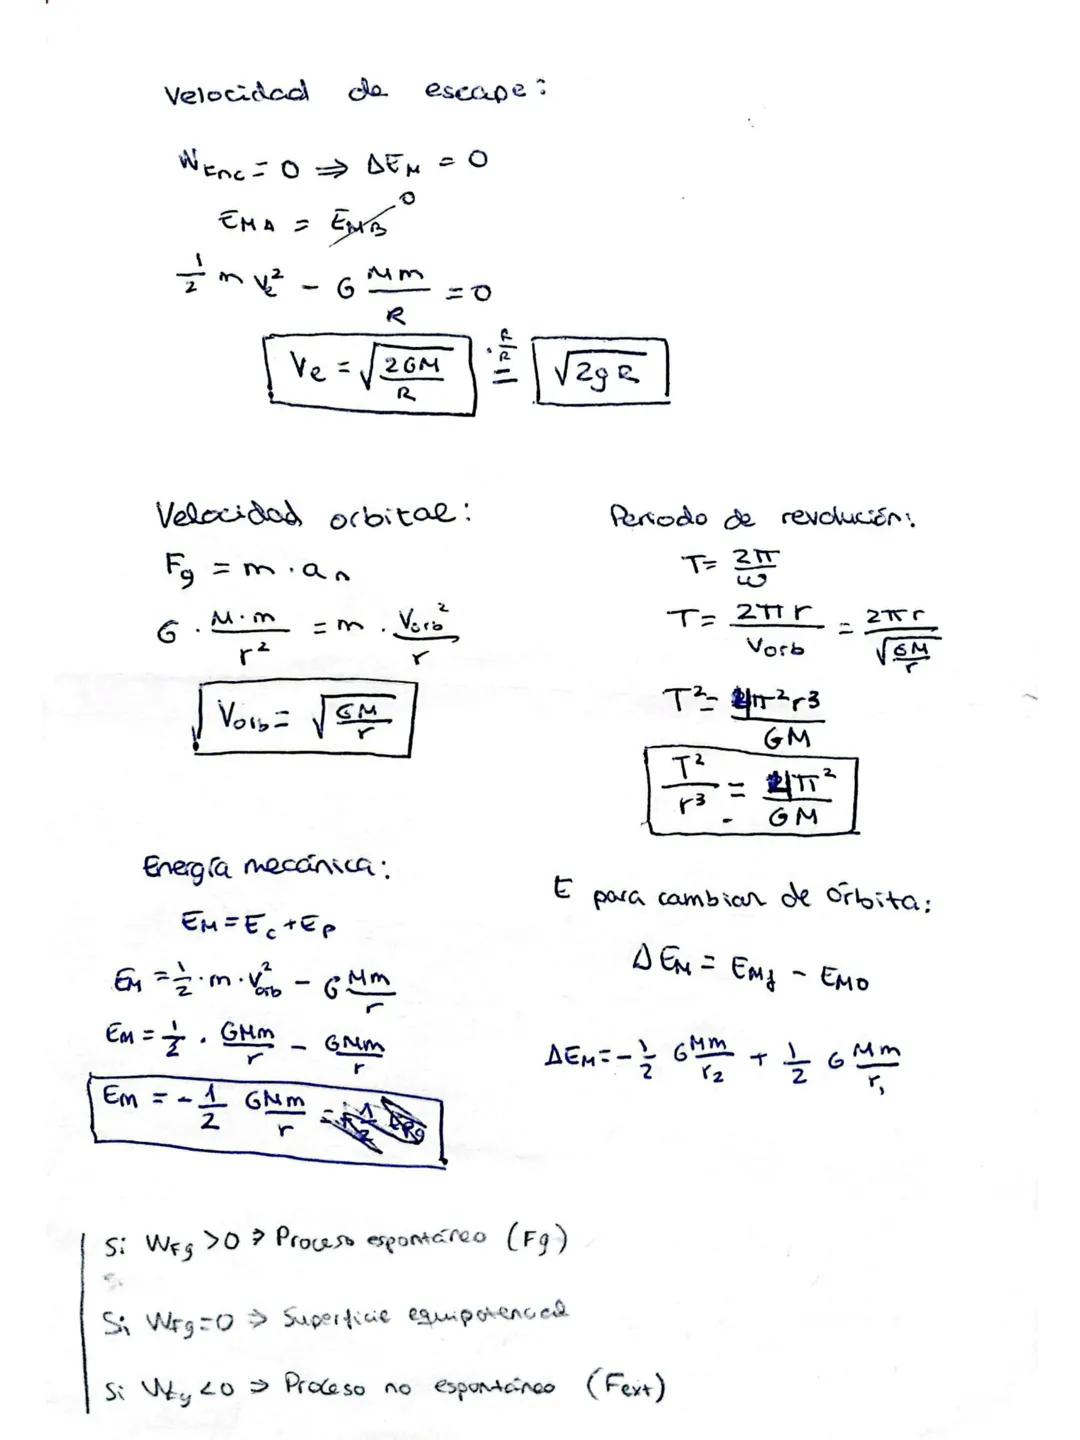 Velocidad de escape:
W_Fnc = 0 ⇒ ΔE_M = 0
E_MA = E_MB 0
1/2 m v_e² - G Mm/R = 0
V_e = √(2GM/R) ·R/R = √(2gR)
Velocidad orbital:
F_g = m · a_n
G · M·m/r² = m · V_orb²/r
V_orb = √(GM/r)
Periodo de revolución:
T = 2π/ω
T = 2πr/V_orb = 2πr/√(GM/r)
T² = 4π²r³/GM
T²/r³ = 4π²/GM
Energía mecánica:
E_M = E_c + E_p
E_M = 1/2 · m · V_orb² - G Mm/r
E_M = 1/2 · GMm/r - GMm/r
E_M = -1/2 GMm/r =
E para cambiar de órbita:
ΔE_M = E_Mf - E_M0
ΔE_M = -1/2 G Mm/r₂ + 1/2 G Mm/r₁
Si W_Fg > 0 ⇒ Proceso espontáneo (Fg)
Si W_Fg = 0 ⇒ Superficie equipotencial
Si W_Fg < 0 ⇒ Proceso no espontáneo (Fext)